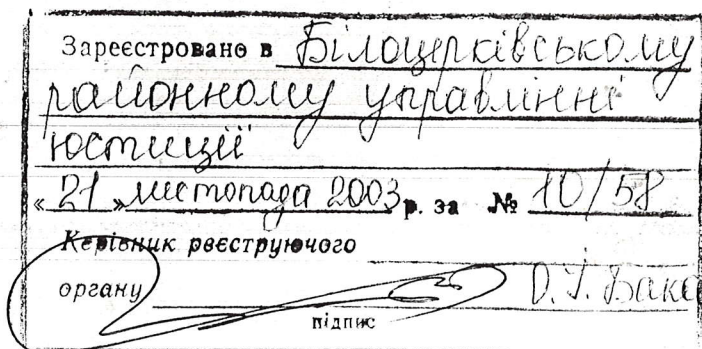 Зареєстровано в Білоцерківському
районному управлінні
юстиції
«21» листопада 2003 р. за № 10/58
Керівник реєструючого
органу О. І. Бака
підпис